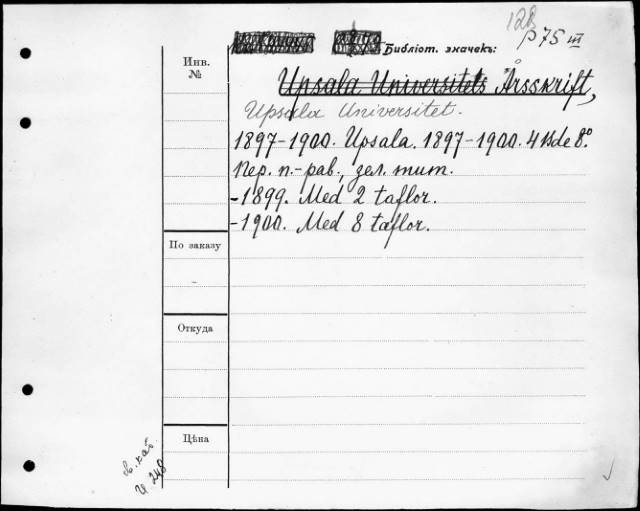 128
Библіот. значекъ: p 75 III
Инв. №
Upsala Universitets Årsskrift,
Upsala Universitet.
1897-1900. Upsala. 1897-1900. 4 Bde 8.°
Пер. п.-рав., зел. тит.
-1899. Med 2 taflor.
-1900. Med 8 taflor.
По заказу
Откуда
Цѣна
248